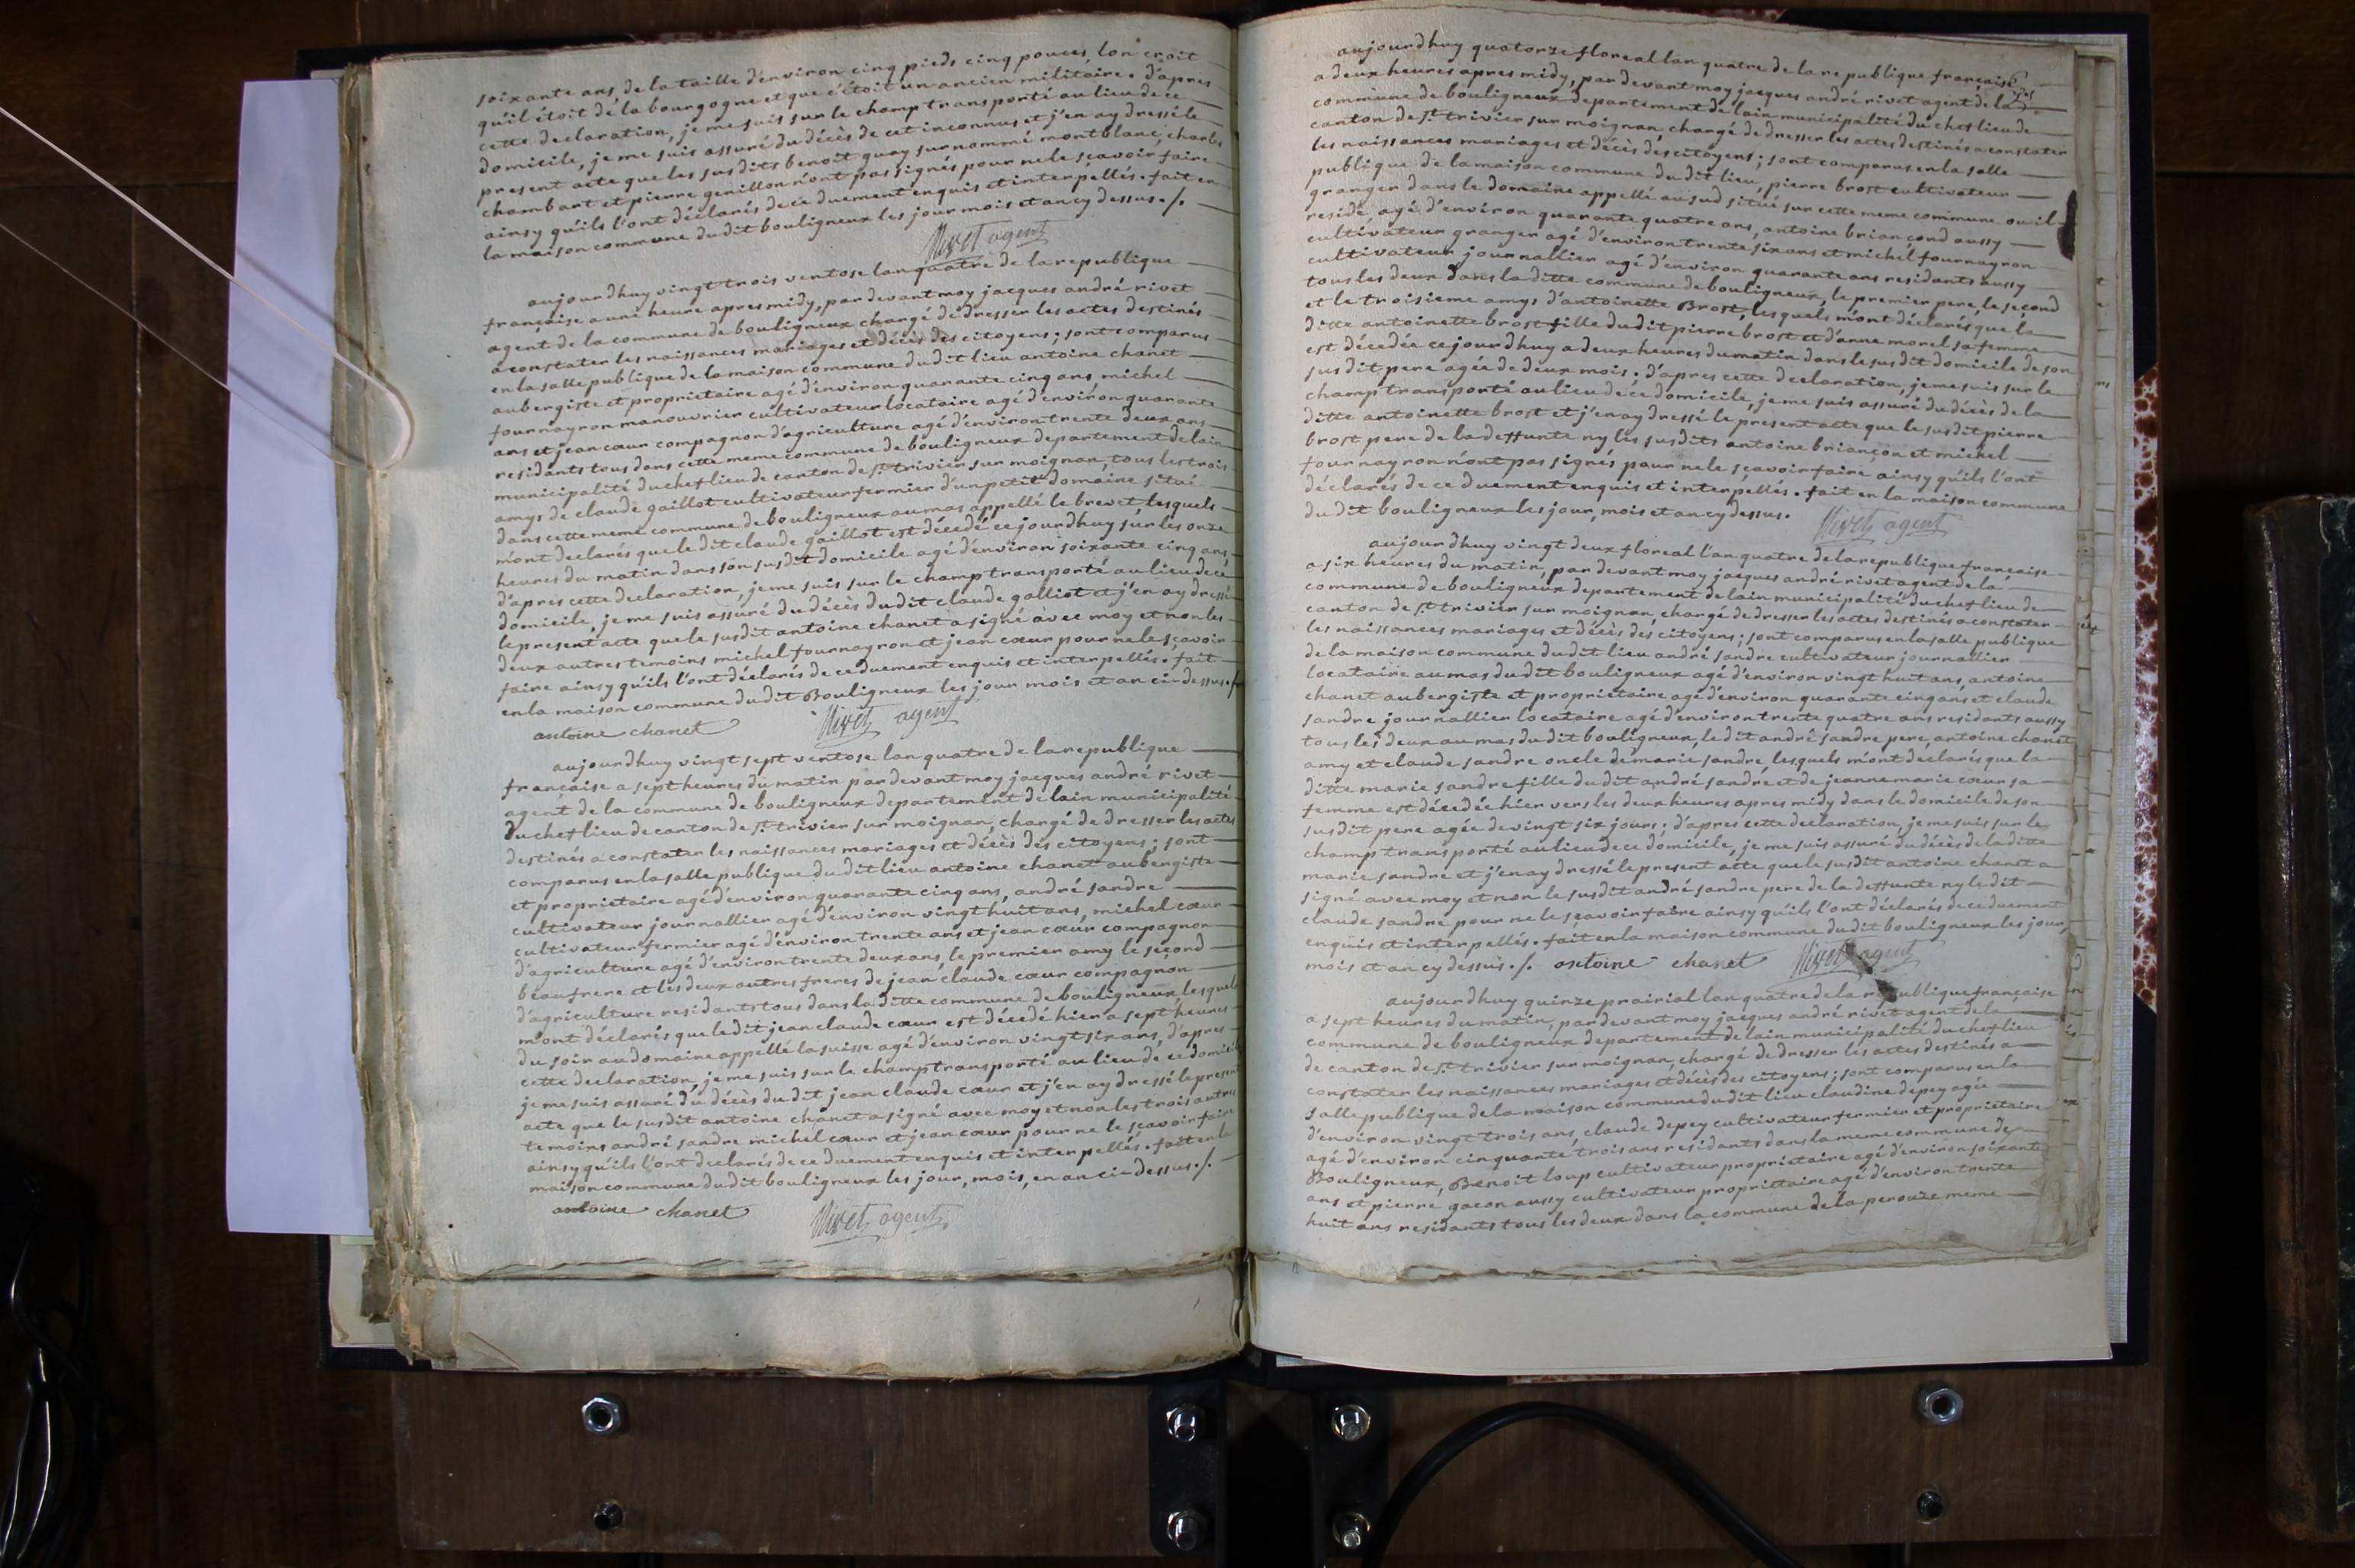 soixante ans de la taille d'environ cinq pieds cinq pouces, lon croit
qu'il étoit dé la bourgogne et que c'étoit un ancien militaire. d'apres
cette declaration, je me suis sur le champ transporté au lieu de ce
domicile, je me suis assuré du décès de cet inconnus et j'en ay dressé le
present acte que les susdits benoit quay surnommé montblanc, charles
chambart et pierre genillon n'ont pas signés pour ne le sçavoir faire
ainsy qu'ils l'ont déclarés de ce duement enquis et interpellés. fait en
la maison commune dudit bouligneux les jour mois et an cy dessus ./.
Rivet agent
aujourdhuy vingt trois ventose lan quatre de la republique
française a une heure apres midy, par devant moy jacques andré rivet
agent de la commune de bouligneux chargé de dresser les actes destinés
a constater les naissances mariages et décès des citoyens ; sont comparus
en la salle publique de la maison commune dudit lieu antoine chanet
aubergiste et proprietaire agé d'environ quarante cinq ans, michel
fournayron manouvrier cultivateur locataire agé d'environ quarante
ans et jean cœur compagnon d'agriculture agé d'environ trente deux ans
residants tous dans cette meme commune de bouligneux departement de lain
municipalité du chef lieu de canton de st trivier sur moignan, tous les trois
amys de claude gaillot cultivateur fermier d'un petit domaine situé
dans cette meme commune de bouligneux au mas appellé le brevet lesquels
m'ont declarés que le dit claude gaillot est décedé ce jourdhuy sur les onze
heures du matin dans son susdit domicile agé d'environ soixante cinq ans,
d'apres cette declaration, je me suis sur le champ transporté au lieu de ce
domicile, je me suis assuré du décès dudit claude galliot et j'en ay dressé
le present acte que le susdit antoine chanet a signé avec moy et non les
deux autres temoins michel fournayron et jean cœur pour ne le sçavoir
faire ainsy qu'ils l'ont déclarés de ce duement enquis et interpellés. fait
en la maison commune dudit Bouligneux les jour mois et an ci-dessus ./.
antoine chanet Rivet agent
aujourdhuy vingt sept ventose lan quatre de la republique
française a sept heures du matin par devant moy jacques andré rivet
agent de la commune de bouligneux departement de lain municipalité
du chef lieu de canton de st trivier sur moignan, chargé de dresser les actes
destinés a constater les naissances mariages et décès des citoyens ; sont
comparus en la salle publique dudit lieu antoine chanet aubergiste
et proprietaire agé d'environ quarante cinq ans, andré sandre
cultivateur journallier agé d'environ vingt huit ans, michel cœur
cultivateur fermier agé d'environ trente ans et jean cœur compagnon
d'agriculture agé d'environ trente deux ans, le premier amy le second
beaufrere et les deux autres freres de jean claude cœur compagnon
d'agriculture residants tous dans la ditte commune de bouligneux, lesquels
m'ont déclarés que le dit jean claude cœur est décedé hier a sept heures
du soir au domaine appellé la suisse agé d'environ vingt six ans, d'apres
cette declaration, je me suis sur le champ transporté au lieu de ce domicile
je me suis assuré du décès dudit jean claude cœur et j'en ay dressé le present
acte que le susdit antoine chanet a signé avec moy et non les trois autres
temoins andré sandre michel cœur et jean cœur pour ne le sçavoir faire
ainsy qu'ils l'ont declarés de ce duement enquis et interpellés. fait en la
maison commune dudit bouligneux les jour, mois, en an ci-dessus ./.
antoine chanet Rivet agent
aujourdhuy quatorze floreal lan quatre de la republique française
a deux heures apres midy, par devant moy jacques andré rivet agent de la
commune de bouligneux departement de lain municipalité du chef lieu de
canton de st trivier sur moignan, chargé de dresser les actes destinés a constater
les naissances mariages et décès des citoyens ; sont comparus en la salle
publique de la maison commune dudit lieu, pierre brost cultivateur
granger dans le domaine appellé au sud situé sur cette meme commune ou il
reside, agé d'environ quarante quatre ans, antoine briançond aussy
cultivateur granger agé d'environ trente six ans et michel fournayron
cultivateur journallier agé d'environ quarante ans residants aussy
tous les deux dans la ditte commune de bouligneux, le premier pere, le second
et le troisieme amys d'antoinette Brost, lesquels m'ont déclarés que la
ditte antoinette brost fille dudit pierre brost et d'anne morel sa femme
est décedée ce jourdhuy a deux heures du matin dans le susdit domicile de son
susdit pere agée de deux mois ; d'apres cette declaration, je me suis sur le
champ transporté au lieu de ce domicile, je me suis assuré du décès de la
ditte antoinette brost et j'en ay dressé le present acte que le susdit pierre
brost pere de la deffunte ny les susdits antoine briançon et michel
fournayron n'ont pas signés pour ne le sçavoir faire ainsy qu'ils l'ont
déclarés de ce duement enquis et interpellés. fait en la maison commune
dudit bouligneux les jour, mois et an cy dessus. Rivet agent
aujourdhuy vingt deux floreal l'an quatre de la republique française
a six heures du matin, par devant moy jacques andré rivet agent de la
commune de bouligneux departement de lain municipalité du chef lieu de
canton de st trivier sur moignan, chargé de dresser les actes destinés a constater
les naissances mariages et décès des citoyens ; sont comparus en la salle publique
de la maison commune dudit lieu andré sandre cultivateur journallier
locataire au mas dudit bouligneux agé d'environ vingt huit ans, antoine
chanet aubergiste et proprietaire agé d'environ quarante cinq ans et claude
sandre journallier locataire agé d'environ trente quatre ans residants aussy
tous les deux au mas dudit bouligneux, le dit andré sandre pere, antoine chanet
amy et claude sandre oncle de marie sandre, lesquels m'ont declarés que la
ditte marie sandre fille dudit andré sandre et de jeanne marie cœur sa
femme est décedée hier vers les deux heures apres midy dans le domicile de son
susdit pere agée de vingt six jours ; d'apres cette declaration, je me suis sur le
champ transporté au lieu de ce domicile, je me suis assuré du décès de la ditte
marie sandre et j'en ay dressé le present acte que le susdit antoine chanet a
signé avec moy et non le susdit andré sandre pere de la deffunte ny le dit
claude sandre pour ne le sçavoir faire ainsy qu'ils l'ont déclarés de ce duement
enquis et interpellés. fait en la maison commune dudit bouligneux les jour,
mois et an cy dessus ./. antoine chanet Rivet agent
aujourdhuy quinze prairial lan quatre de la republique française
a sept heures du matin, par devant moy jacques andré rivet agent de la
commune de bouligneux departement de lain municipalité du chef lieu
de canton de st trivier sur moignan, chargé de dresser les actes destinés a
constater les naissances mariages et décès des citoyens ; sont comparus en la
salle publique de la maison commune dudit lieu claudine depey agée
d'environ vingt trois ans, claude depey cultivateur fermier et proprietaire
agé d'environ cinquante trois ans residants dans la meme commune de
Bouligneux, Benoit loup cultivateur proprietaire agé d'environ soixante
ans et pierre gacon aussy cultivateur proprietaire agé d'environ trente
huit ans residants tous les deux dans la commune de la perouze meme